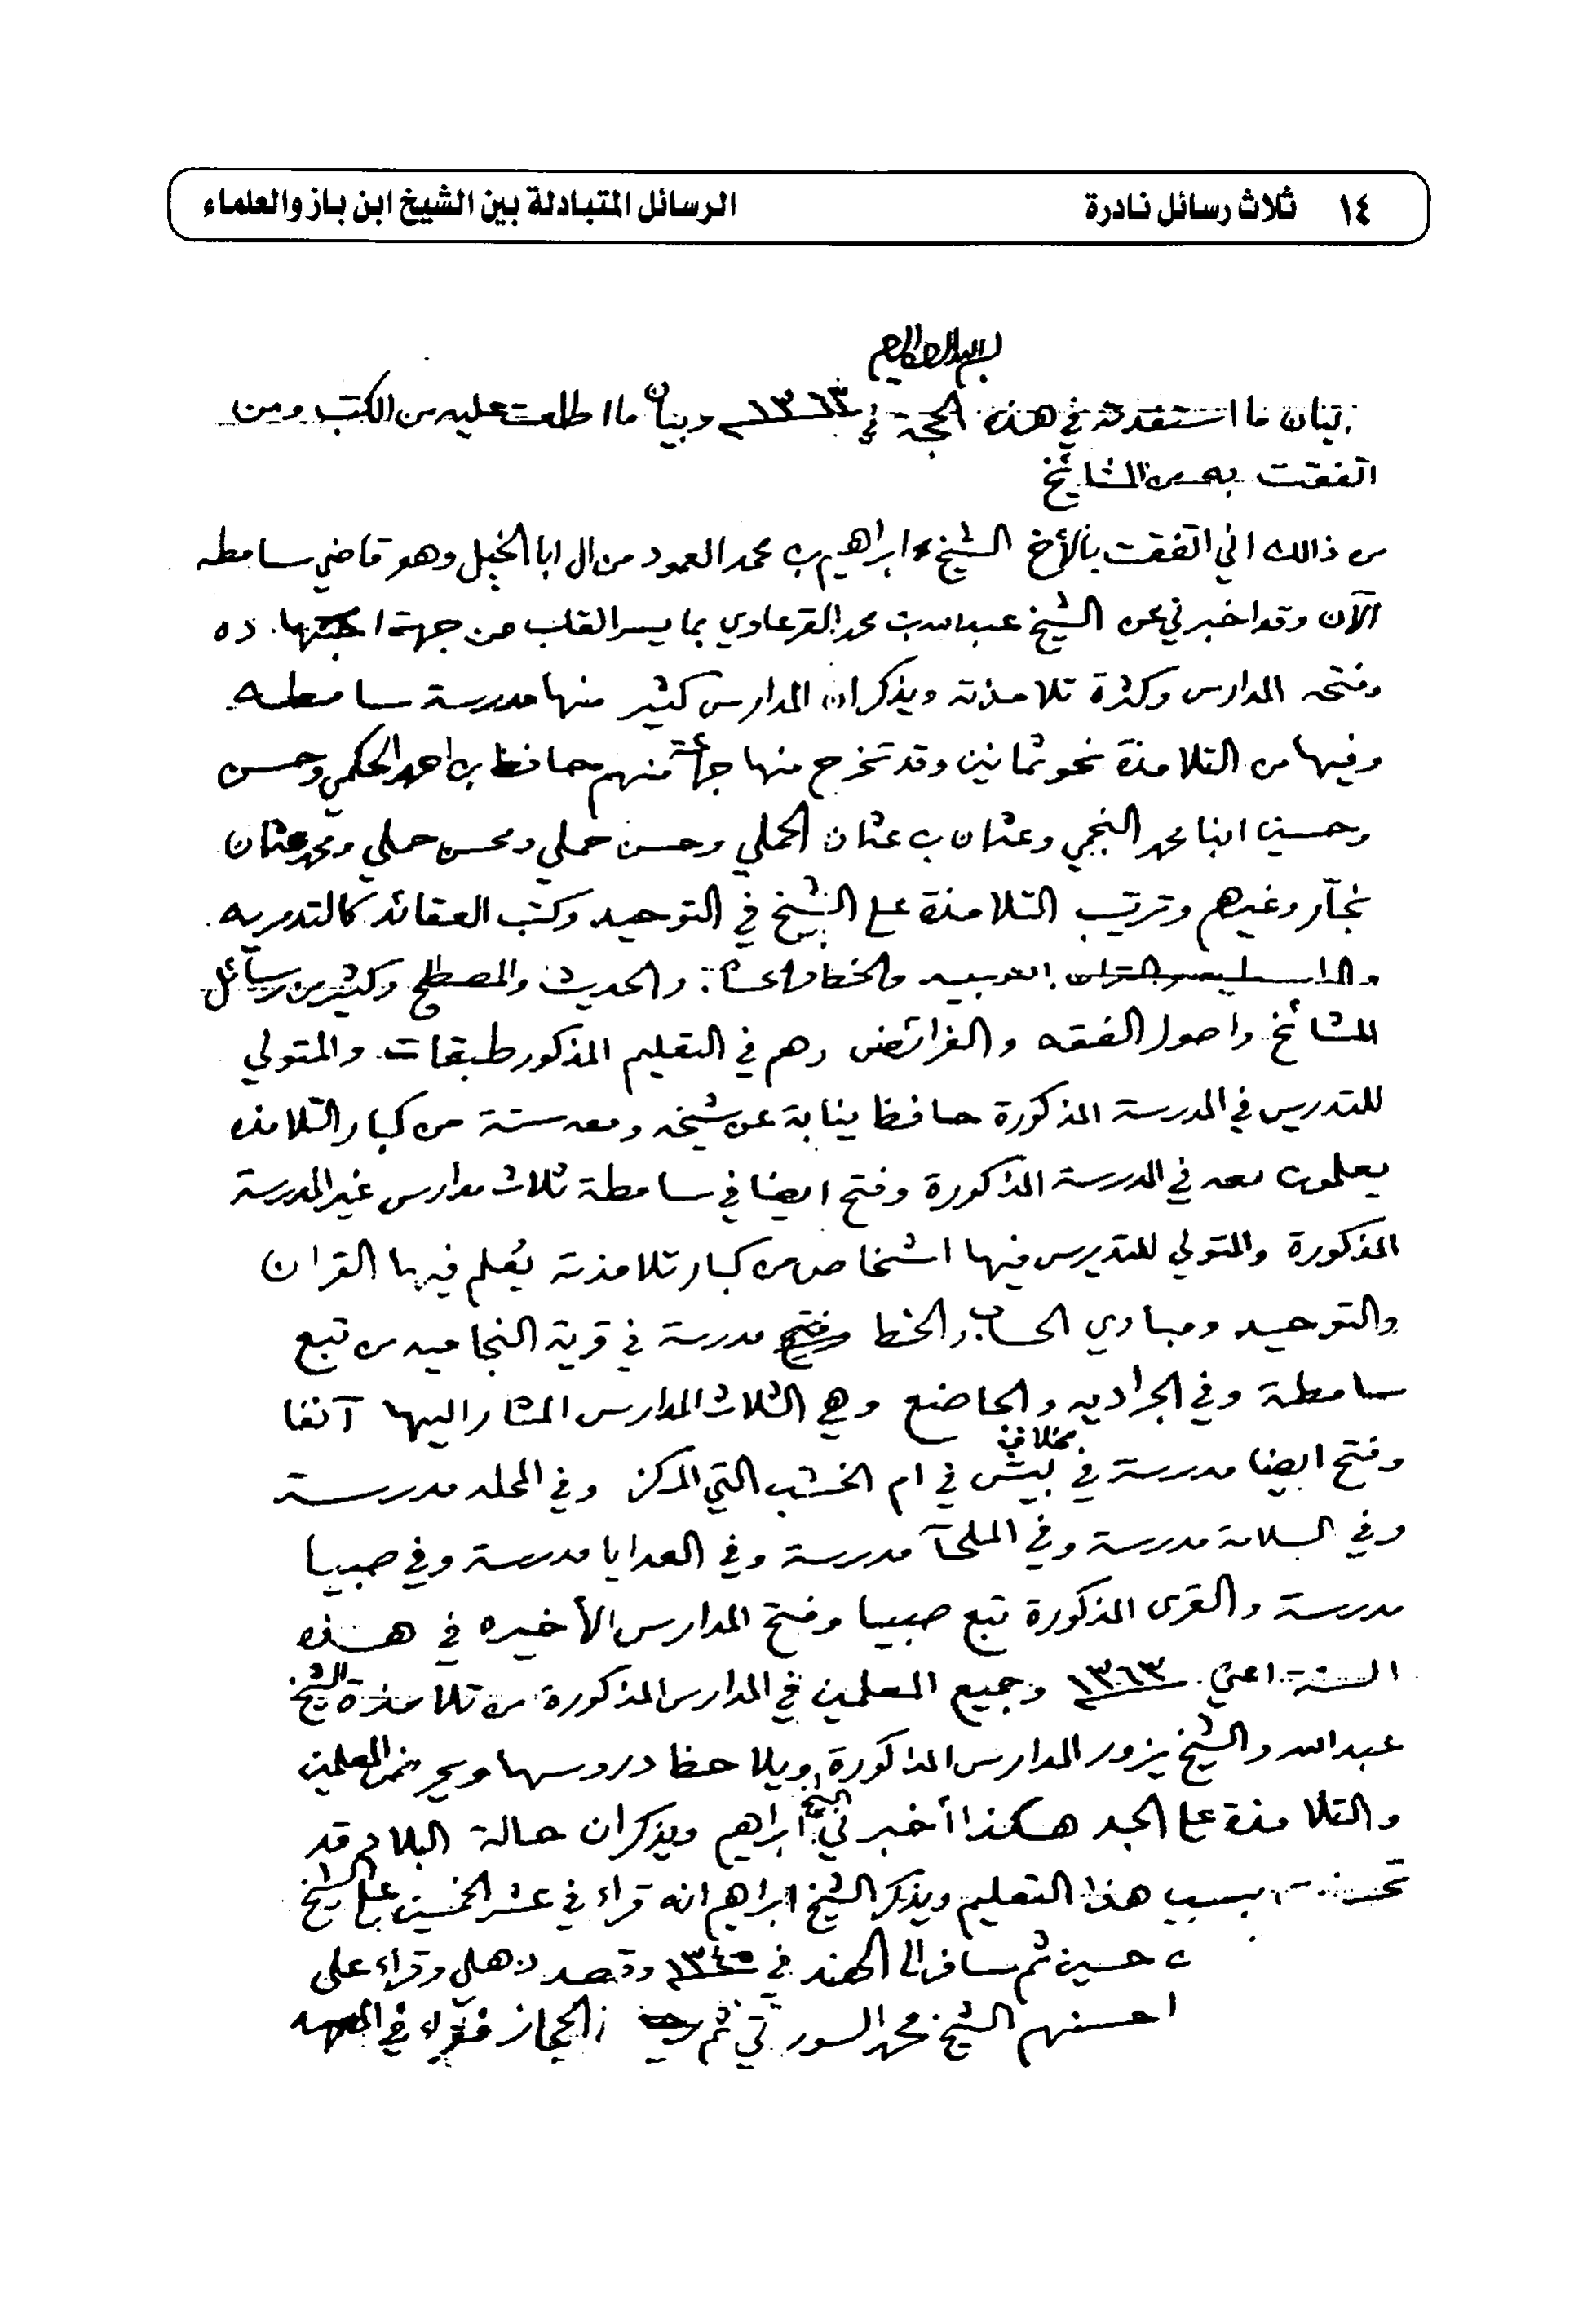 ١٤ ثلاث رسائل نادرة الرسائل المتبادلة بين الشيخ ابن باز والعلماء
بسم الله الرحمن الرحيم
بيان ما استفدته في هذه الحجة في ١٣٦٣ وبيان ما اطلعت عليه من الكتب ومن
اتفقت به من المشائخ
من ذالك اني اتفقت بالأخ الشيخ ابراهيم بن محمد العمود من ال ابا الخيل وهو قاضي سامطه
الآن وقد اخبرني عن الشيخ عبدالله بن محمد القرعاوي بما يسر القلب من جهة اجتهاده
وفتحه المدارس وكثرة تلامذته ويذكر ان المدارس كثير منها مدرسة سامطه
وفيها من التلامذة نحو ثمانين وقد تخرج منها جماعة منهم حافظ بن احمد الحكمي وحسن
وحسين ابنا محمد النجمي وعثمان بن عثمان الحملي وحسن حملي ومحسن حملي ومحمد عثمان
نجار وغيرهم وترتيب التلامذة على الشيخ في التوحيد وكتب العقائد كالتدمريه
والحديث والمصطلح وكثير من رسائل
المشائخ واصول الفقه والفرائض وهم في التعليم المذكور طبقات والمتولي
للتدريس في المدرسة المذكورة حافظ ينابة عن شيخه ومعه ستة من كبار التلامذه
يعلمون معه في المدرسة المذكورة وفتح ايضا في سامطة ثلاث مدارس غير المدرسة
المذكورة والمتولي للتدريس فيها اشخاص من كبار تلامذته يُعلم فيها القران
والتوحيد ومبادي الحساب والخط وفتح مدرسة في قرية النجاميه من تبع
سامطة وفي الجراديه والحاضع وهي الثلاث المدارس المشار اليها آنفا
وفتح ايضا مدرسة في مخلاف بيش في ام الخشب التي المركز وفي المحله مدرسة
وفي السلامة مدرسة وفي الملحآ مدرسة وفي العدايا مدرسة وفي صبيا
مدرسة والقرى المذكورة تبع صبيا وفتح المدارس الأخيره في هذه
السنة اعني ١٣٦٣ وجميع المعلمين في المدارس المذكورة من تلامذة الشيخ
عبدالله والشيخ يزور المدارس المذكورة ويلاحظ دروسها ويحرض المعلمين
والتلامذة على الجد هكذا أخبرني الشيخ ابراهيم ويذكر ان حالة البلاد قد
تحسنت بسبب هذا التعليم ويذكر الشيخ ابراهيم انه قراء في عشر الخمسين على الشيخ
حسين ثم سافر الى الهند في ١٣٤٥ وقصد دهلي وقراء على
احسنهم الشيخ محمد السورتي ثم الحجاز فقراء في المعهد